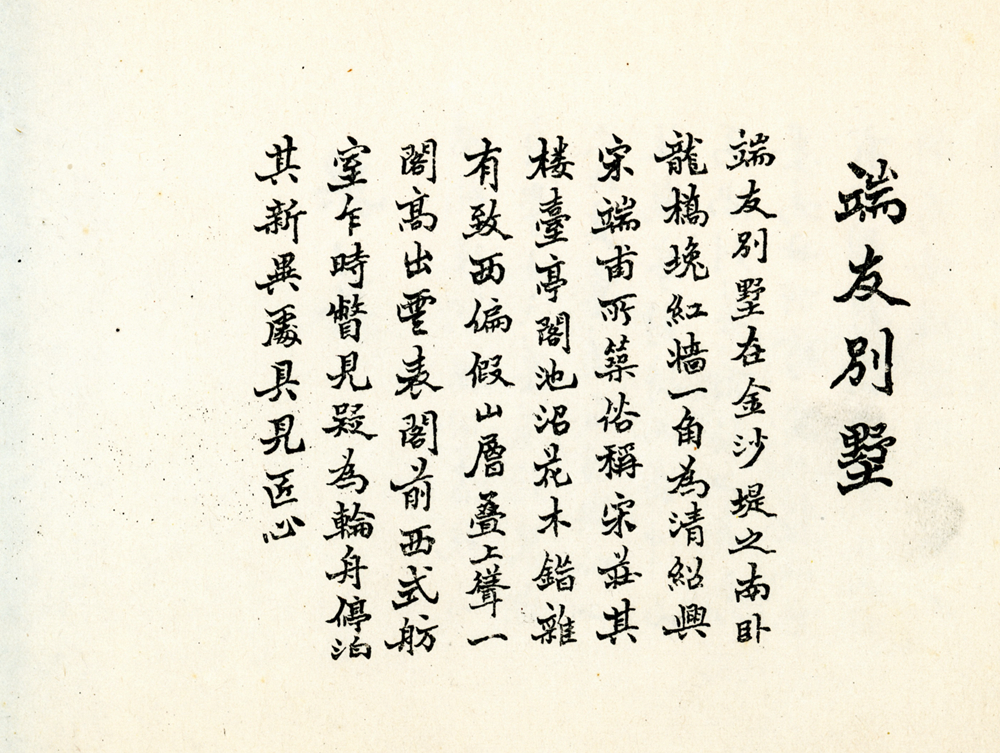 端友别墅
端友别墅在金沙堤之南卧
龍橋堍紅墻一角為清紹興
宋端甫所築俗稱宋莊其
楼臺亭閣池沼花木錯雜
有致西偏假山層叠上聳一
閣高出雲表閣前西式舫
室乍時瞥見疑為輪舟停泊
其新異處具見匠心